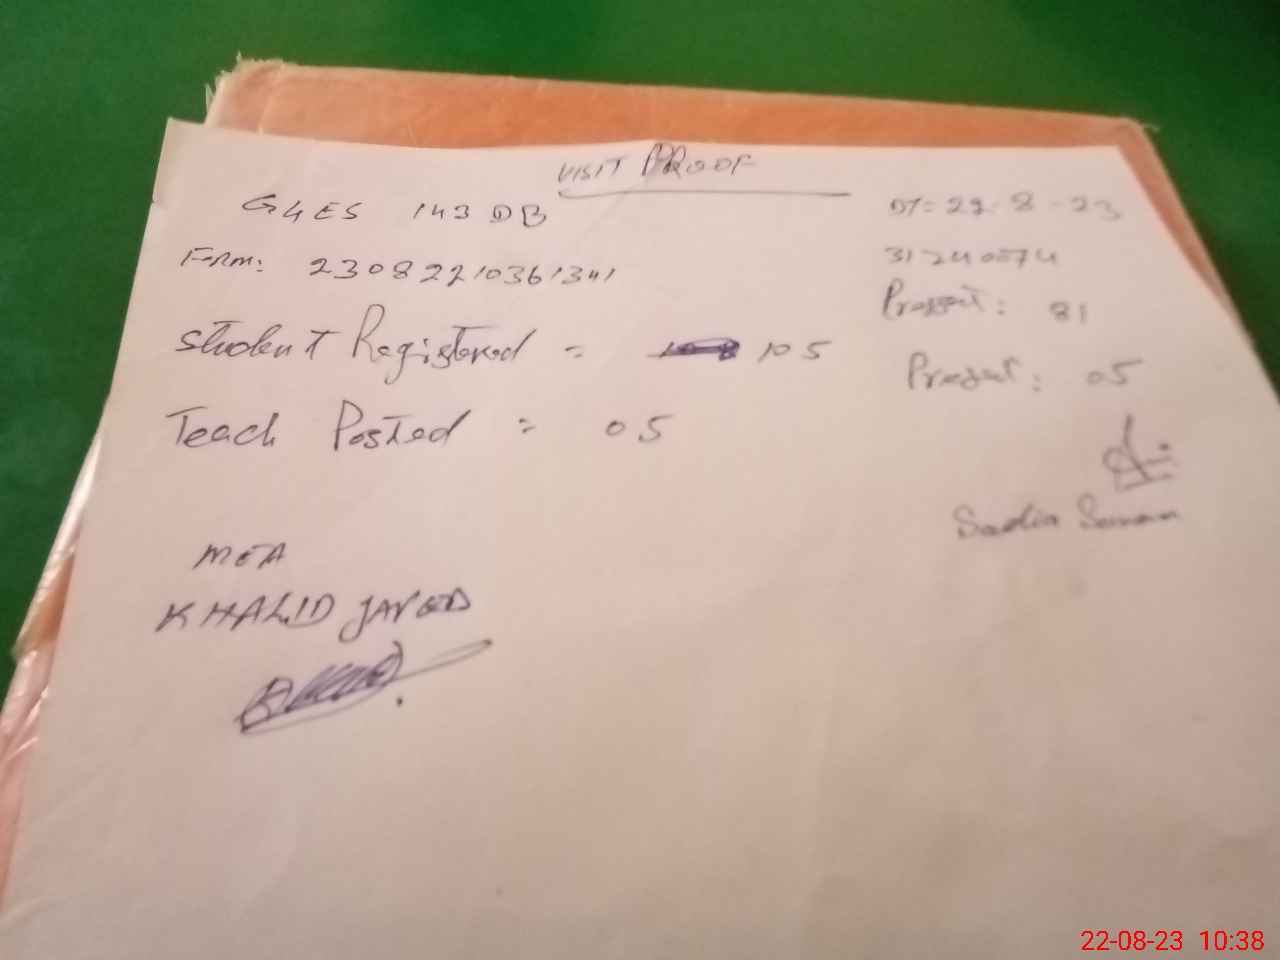 VISIT PROOF
G4ES 143 DB
DT= 22-8-23
Form: 23082210361341
31240074
Present: 81
Student Registered = 105
Present: 05
Teach Posted = 05
Sadia
MEA
KHALID JAVED
22-08-23 10:38